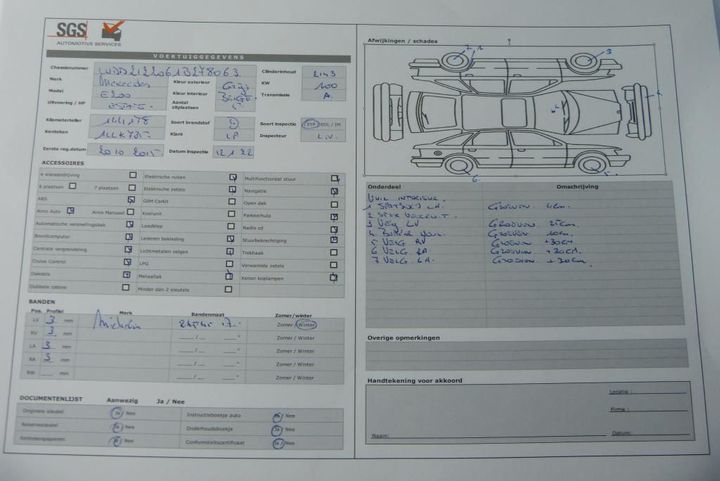 SGS
AUTOMOTIVE SERVICES
VOERTUIGGEGEVENS
Chassisnummer
Merk Mercedes
Model E200
Uitvoering / MF
Kleur exterieur Grijs
Kleur interieur Beige
Aantal zitplaatsen 5
Cilinderinhoud 2143
KW 100
Transmissie A.
Kilometerteller 144178
Kenteken
Soort brandstof D
Klant LP
Soort inspectie
Inspecteur L.V.
Eerste reg.datum 20 10 2015
Datum inspectie 12 1 22
ACCESSOIRES
4 wielaandrijving
Elektrische ruiten
Multifunctioneel stuur
5 plaatsen
7 plaatsen
Elektrische zetels
Navigatie
ABS
GSM Carkit
Open dak
Airco Auto
Airco Manueel
Koelunit
Parkeerhulp
Automatische versnellingsbak
Laadklep
Radio cd
Boordcomputer
Lederen bekleding
Stuurbekrachtiging
Centrale vergrendeling
Lichtmetalen velgen
Trekhaak
Cruise Control
LPG
Verwarmde zetels
Dakrails
Metaallak
Xenon koplampen
Dubbele cabine
Minder dan 2 sleutels
BANDEN
Pos. Profiel
Merk
Bandenmaat
Zomer/winter
LV 3 mm
Michelin
Zomer / Winter
RV 3 mm
Zomer / Winter
LA 3 mm
Zomer / Winter
RA 3 mm
Zomer / Winter
RW mm
Zomer / Winter
DOCUMENTENLIJST
Aanwezig
Ja / Nee
Originele sleutel Ja / Nee
Instructieboekje auto Ja / Nee
Reservesleutel Ja / Nee
Onderhoudsboekje Ja / Nee
Kentekenpapieren Ja / Nee
Conformiteitscertificaat Ja / Nee
Afwijkingen / schades
1
2
3
6
5
Onderdeel
Omschrijving
Vuil interieur.
1 Spatbord LA. Groeven 4cm.
2
3 Velg LV Groeven 25cm.
4 Groeven 10cm.
5 Velg RV Groeven +30cm
6 Velg RA Groeven +30cm.
7 Velg LA. Groeven +30cm.
Overige opmerkingen
Handtekening voor akkoord
Locatie :
Firma :
Naam:
Datum: